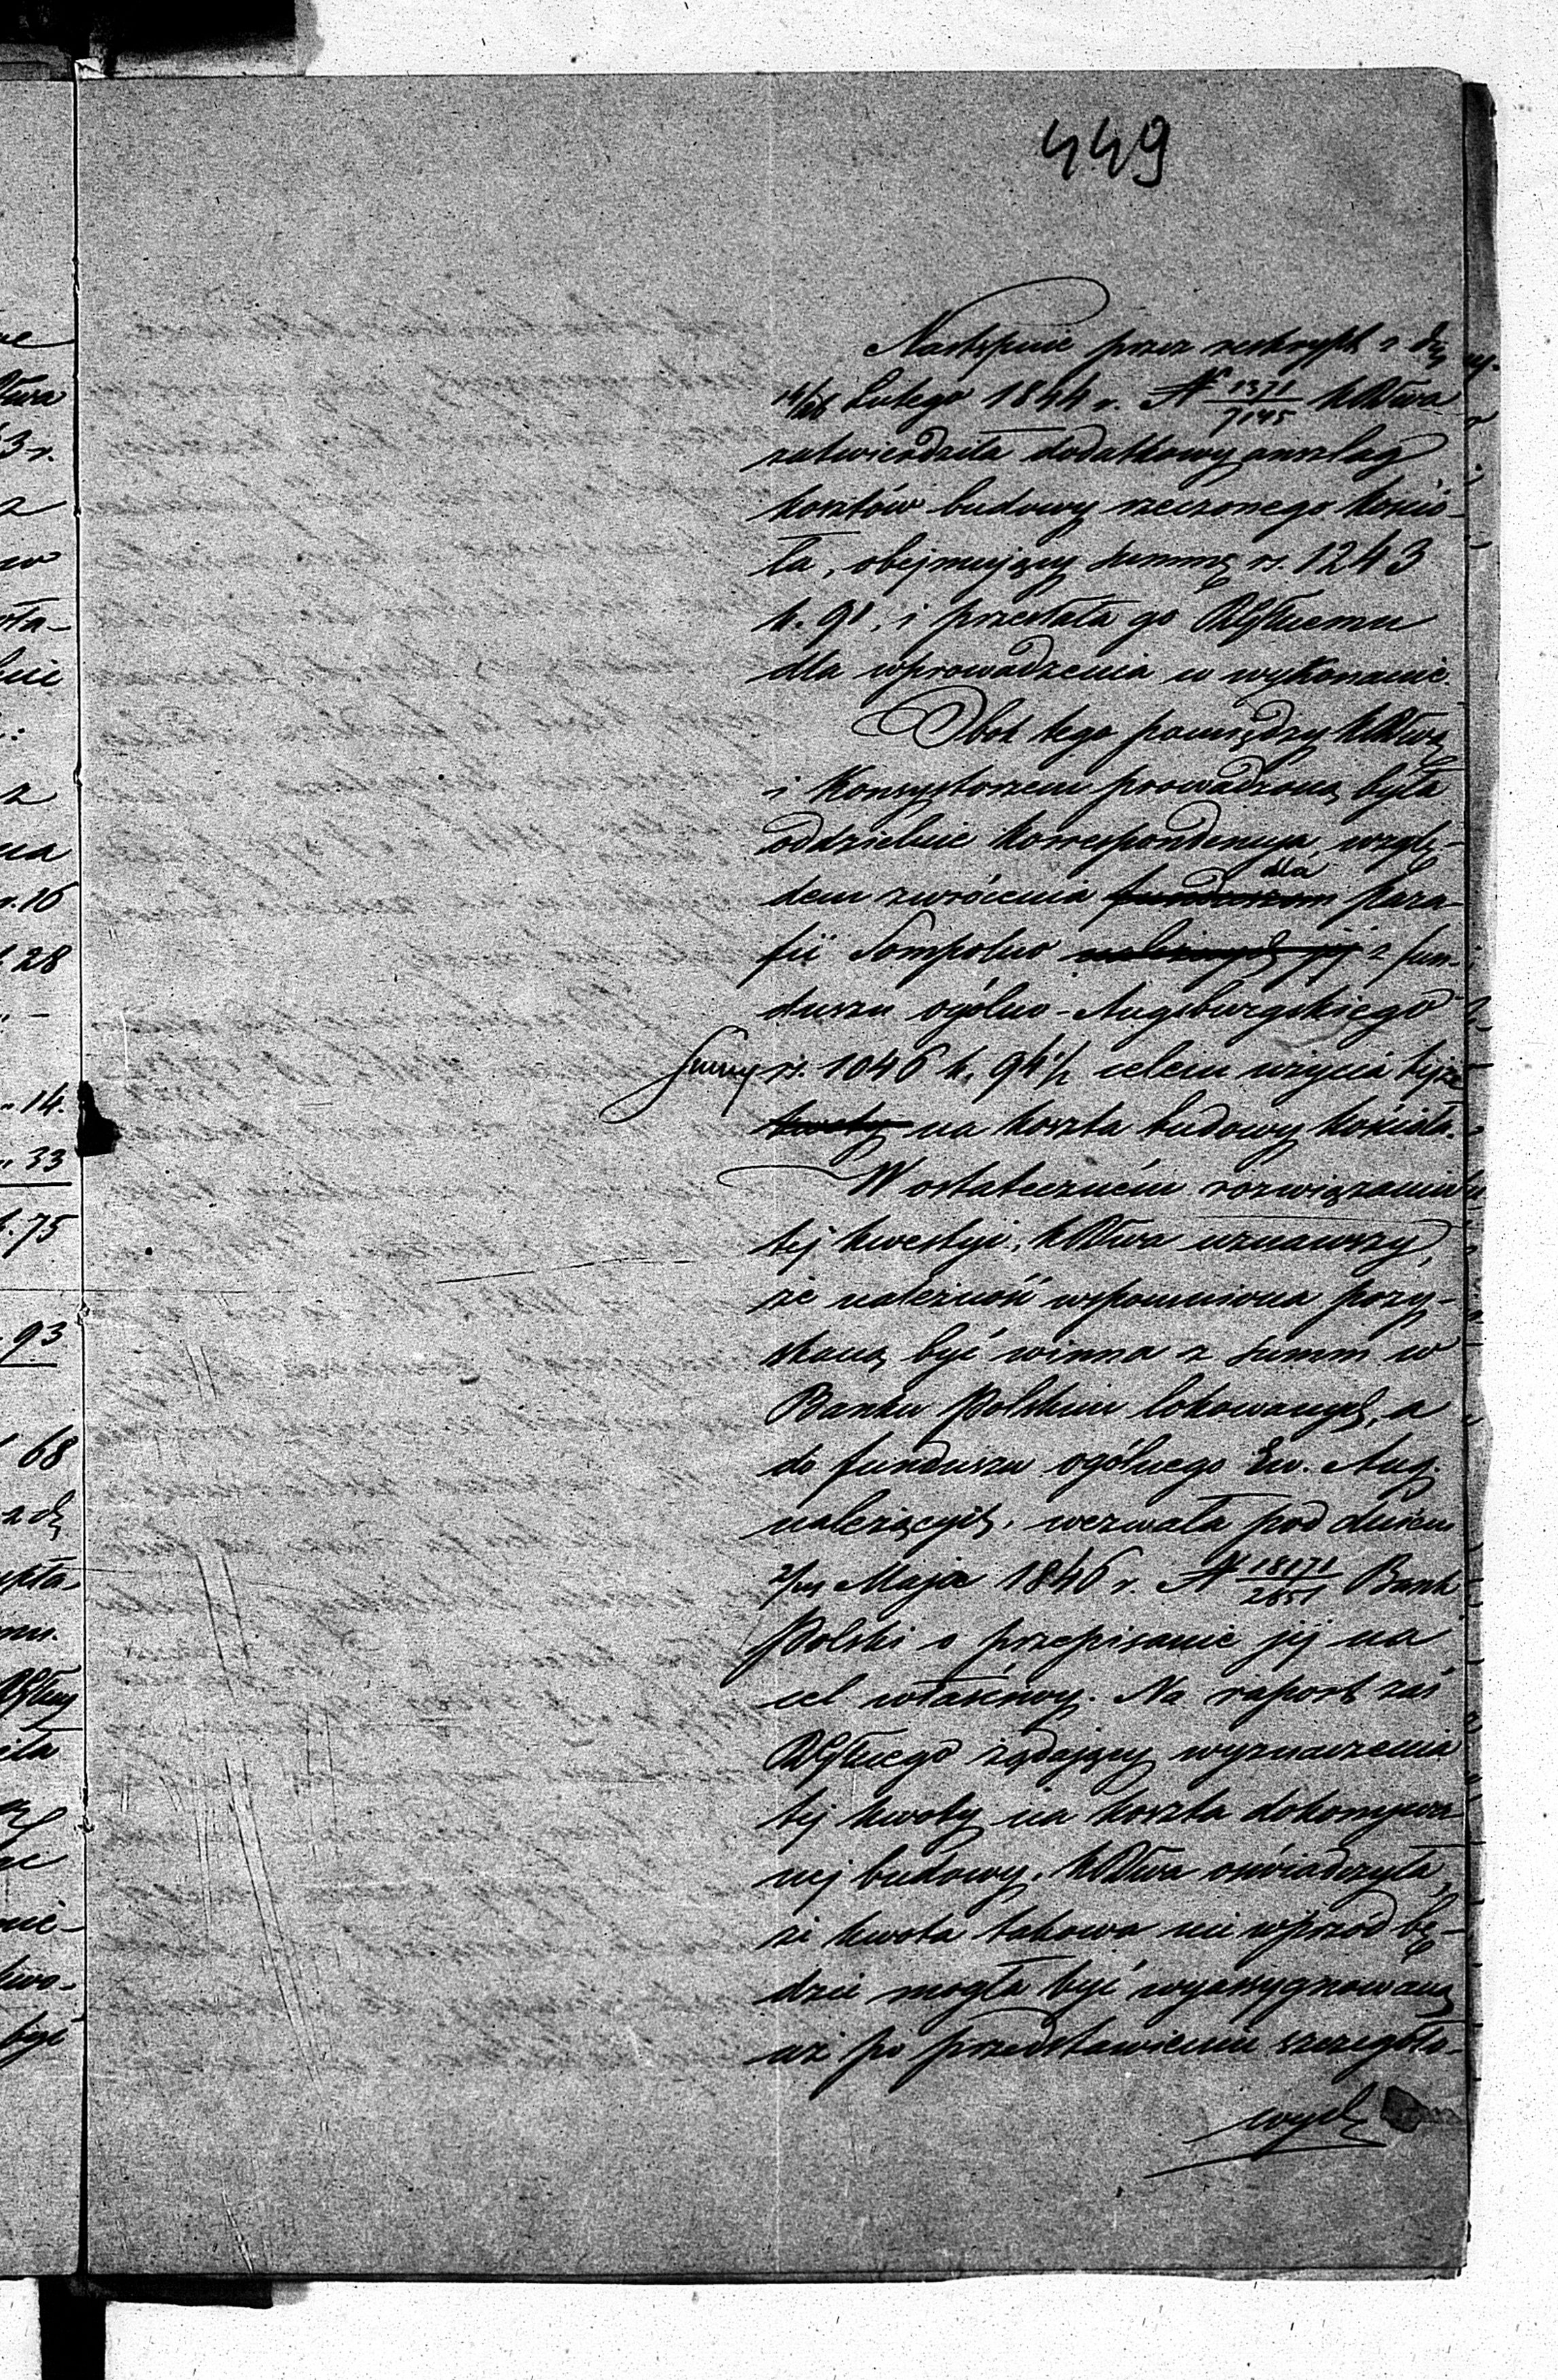 449
Następnie przez reskrypt z d.
16/28 Lutego 1844 r. N 1371/7145 KRSwa
zatwierdziła dodatkowy anszlag
kosztów budowy rzeczonego kościo-
ła, obejmujący summę rs. 1243
k. 91, i przesłała go
dla wprowadzenia w wykonanie.
Obok tego pomiędzy KRSwą
i Konsystorzem prowadzoną była
oddzielnie korrespondencya wzglę-
dem zwrócenia funduszom dla para-
fii Sompolno należnych jej z fun-
duszu ogólno-Augsburgskiego
Summy rs. 1046 k. 94 1/2 celem użycia tejże
kwoty na koszta budowy kościoła.
W ostateczném rozwiązaniu
tej kwestyi, KRSwa uznawszy,
że należność wspomniona pozy-
skaną być winna z summ w
Banku Polskim lokowanych, a
do funduszu ogólnego Ew. Aug.
należących, wezwała pod dniem
Maja 1846 r. N 18171/2651 Bank
Polski o przepisanie jej na
cel właściwy. Na raport zaś
żądający wyznaczenia
tej kwoty na koszta dokonywa-
nej budowy, KRSwa oświadczyła,
że kwota takowa nie wprzód bę-
dzie mogła być wyassygnowaną
aż po przedstawieniu szczegóło-
wych